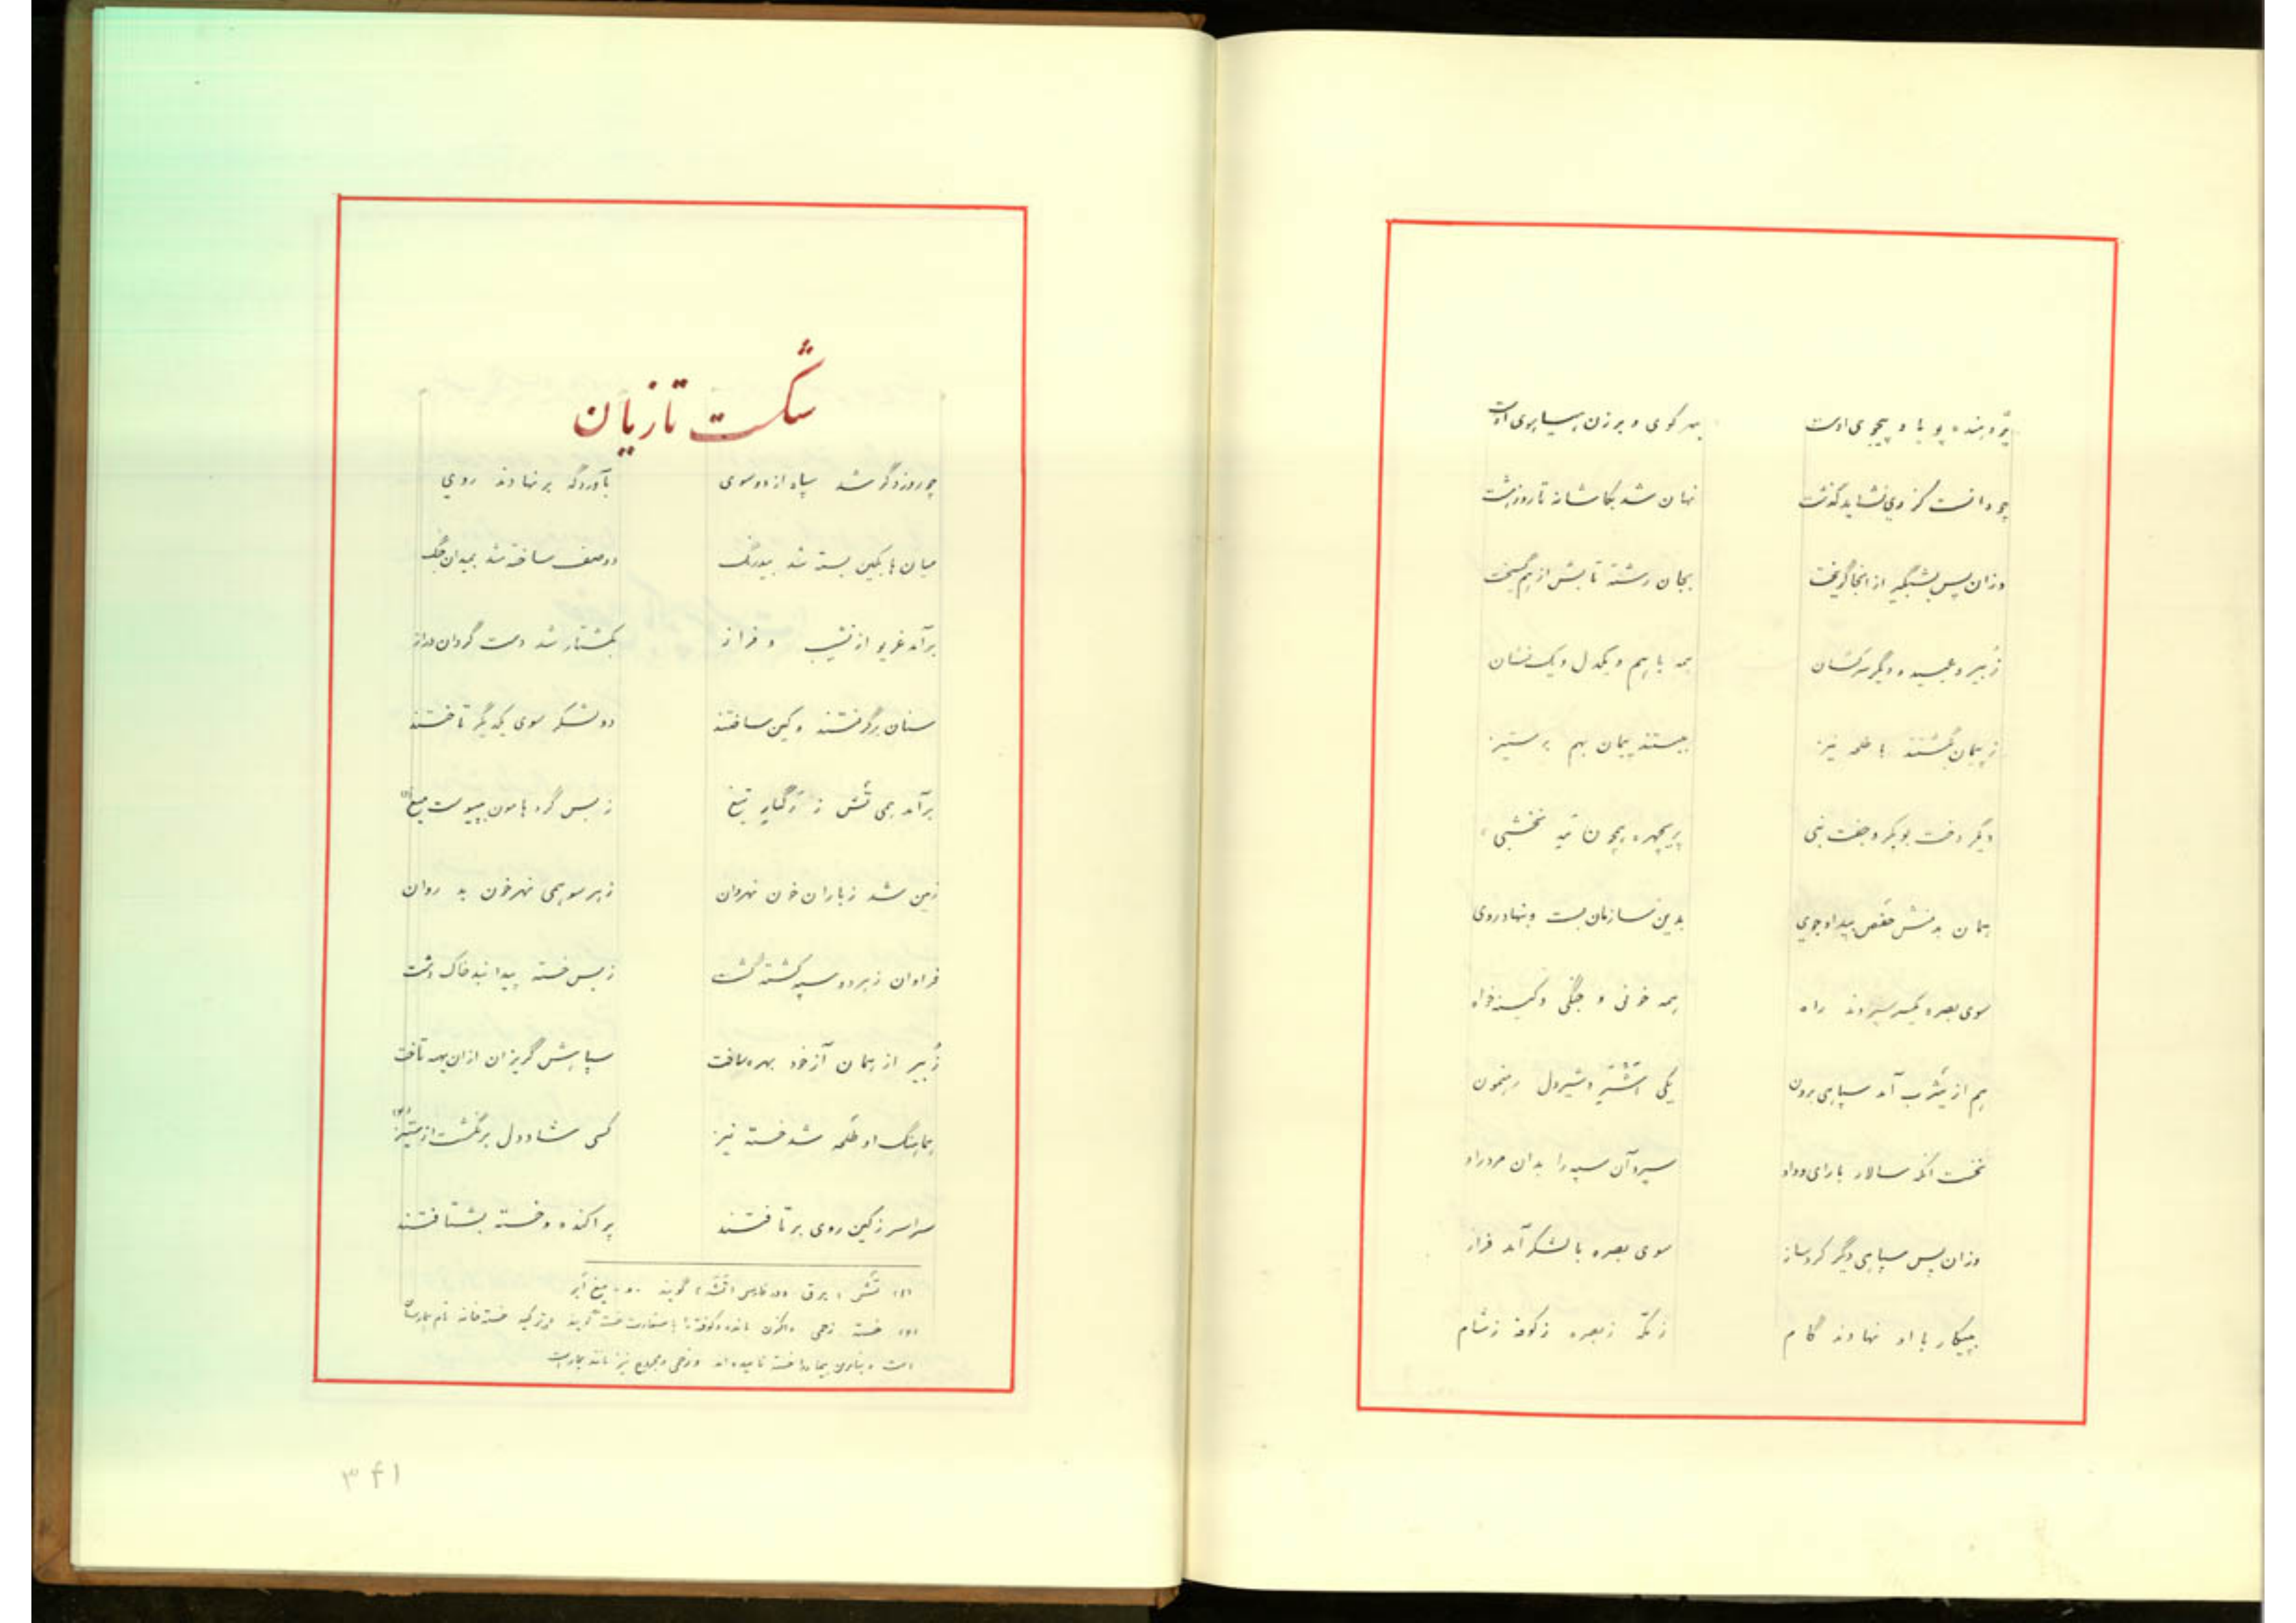 پژوهنده پویا و پیجوی اوست بهر کوی و برزن هیاهوی اوست
چو دانست کز وی نشاید گذشت نهان شد بکاشانه تا روز هشت
وزان پس بشبگیر از آنجا گریخت بجان رشته تابش از هم گسیخت
زُبیر و عبیده و دیگر سرکشان همه با هم و یکدل و یک نشان
ز پیمان گسستند با طلحه نیز ببستند پیمان بهم بر ستیز
دگر دخت بوبکر و جفت نبی پریچهره همچون مه نخشبی
همان بد منش حفص بیداد جوی بدین ساز مان بست و بنهاد روی
سوی بصره یکسر سپردند راه همه خونی و جنگی و کینه خواه
هم از یثرب آمد سپاهی برون یکی اشتر و شیردل رهنمون
نخست آنکه سالار با رای و داد سپرد آن سپه را بدان مرد راد
وزان پس سپاهی دگر کرد ساز سوی بصره با لشگر آمد فراز
بپیکار با او نهادند گام ز مکه ز بصره ز کوفه ز شام
شکست تازیان
چو روز دگر شد سپاه از دو سوی بآوردگه بر نهادند روی
میان ها بکین بسته شد بیدرنگ دو صف ساخته شد بمیدان جنگ
برآمد غریو از نشیب و فراز بکشتار شد دست گردان دراز
سنان برگرفتند و کین ساختند دو لشکر سوی یکدیگر تاختند
برآمد همی تُش ز رگبار تیغ ز بس گرد هامون بپیوست میغ (۱)
زمین شد ز باران خون نهروان ز هر سو همی نهر خون بد روان
فراوان ز هر دو سپه کشته گشت ز بس خسته پیدا نبد خاک دشت
زُبیر از همان آز خود بهره یافت سپاهش گریزان ازان پهنه تافت
هماهنگ او طلحه شد خسته نیز کسی شاد دل برنگشت از ستیز (۲)
سراسر ز کین روی برتافتند پراکنده و خسته بشتافتند
(۱) تُش ، برق گویند میغ ابر
(۲) خسته زخمی خسته گویند خسته خانه نام بیمارستان
است بیمار را خسته نامیده اند و زخمی و مجروح نیز مانند بیمار است
۳۴۱